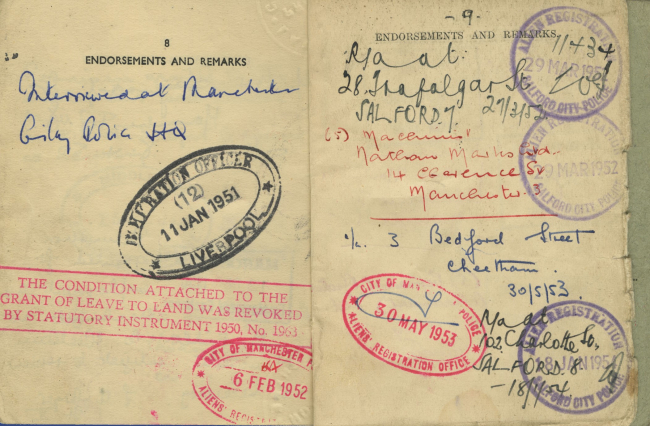 8
ENDORSEMENTS AND REMARKS
Interviewed at Manchester
City Police HQ
IMMIGRATION OFFICER
(12)
11 JAN 1951
★ LIVERPOOL ★
THE CONDITION ATTACHED TO THE
GRANT OF LEAVE TO LAND WAS REVOKED
BY STATUTORY INSTRUMENT 1950, No. 1963
CITY OF MANCHESTER
6 FEB 1952
ALIENS' REGIS
-9-
ENDORSEMENTS AND REMARKS
R/a at:
28, Trafalgar St.
SALFORD 7. 27/3/52
ALIEN REGISTRATION
29 MAR 1952
SALFORD CITY POLICE
(5) Machinist
Nathan Marks Ltd.
14 Clarence St
Manchester
ALIEN REGISTRATION
29 MAR 1952
SALFORD CITY POLICE
3 Bedford Street
Cheetham.
30/5/53
CITY OF MAN POLICE
30 MAY 1953
ALIENS' REGISTRATION OFFICE
R/a at
102, Charlotte St.,
SALFORD 8
-18/1/54
ALIEN REGISTRATION
18 JAN 1954
SALFORD CITY POLICE